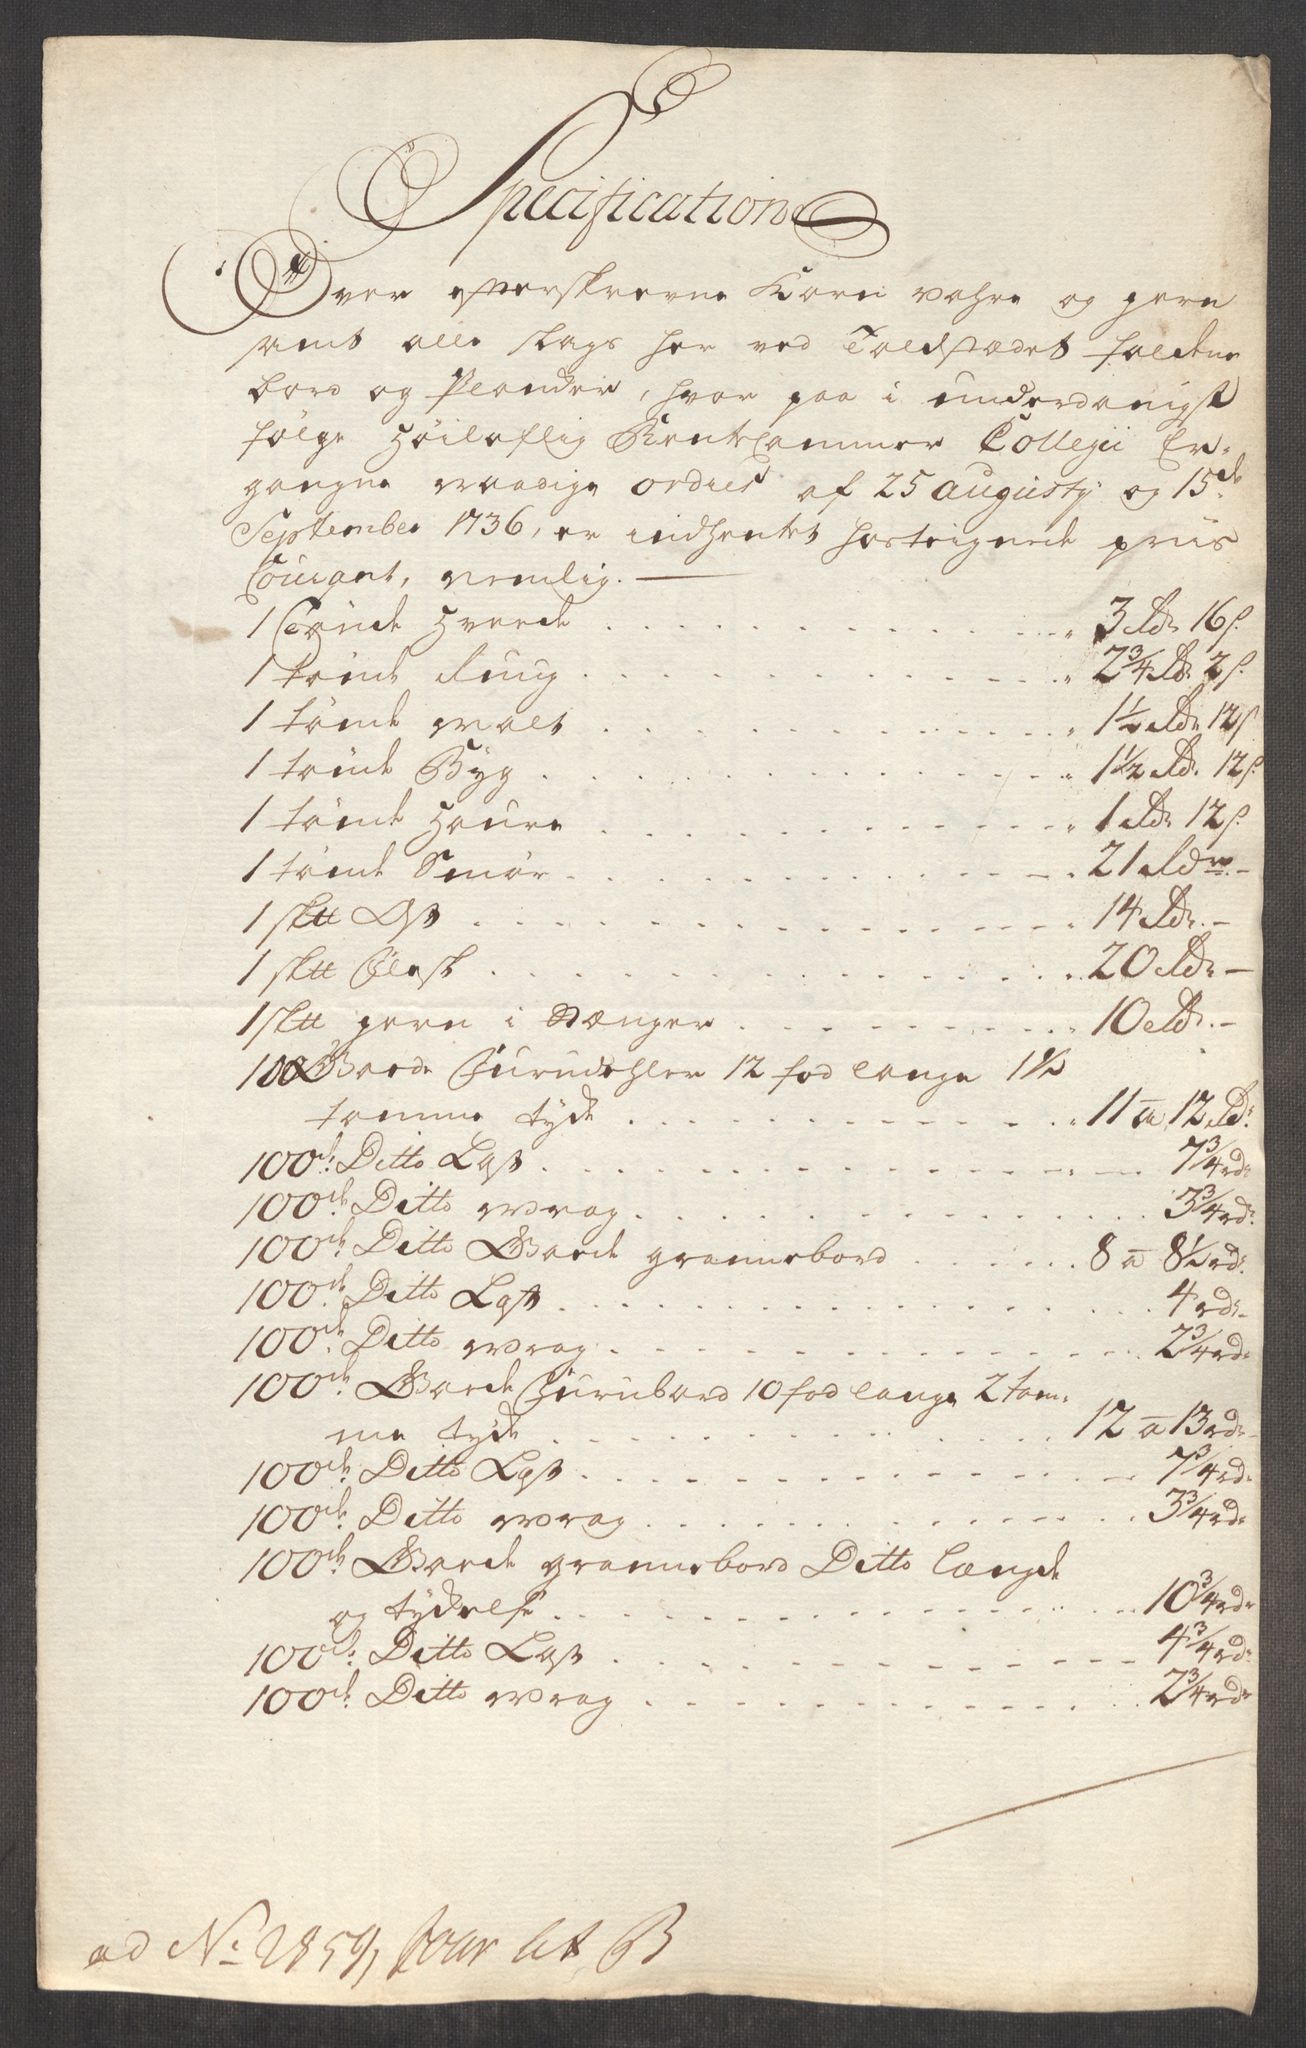 Specification
Over efterskrevne Korn vahre og jern
samt alle slags her ved Toldstædet faldene
bord og Plancker, hvor paa i underdanigst
følge Høiloflig RenteCammer Collegii Er-
gangne naadige ordres af 25 augusty og 15de
September 1736, er indhentet hosteignede priis
Courant, nemlig.
1 Tønde Hvede 3 Rdr 16 s.
1 tønde Rug 2¾ Rdr 2 s.
1 tønde Malt 1½ Rdr 12 s
1 tønde Byg 1½ Rdr. 12 s.
1 tønde Haure 1 Rdr 12 s.
1 tønde Smør 21 Rdr. -
1 sktt Ost 14 Rdr. -
1 sktt Flesk 20 Rdr -
1 sktt jern i Stænger 10 Rdr. -
100 Goede Furudehler 12 fod lange 1½
tomme tyck 11 a 12 Rd.
100de Ditto Last 7¾ rdr
100de Ditto Wrag 3¾ rdr.
100de Ditto Goede grannebord 8 a 8½ rdr.
100de Ditto Last 4 rdr -
100de Ditto Wrag 2¾ rdr
100de Goede Furubord 10 fod lange 2 tom-
me tyck 12 a 13 rdr -
100de Ditto Last 7¾ rdr
100de Ditto Wrag 3¾ rdr
100de Goede grannebord Ditto længde
og tyckelse 10¾ rdr
100de Ditto Last 4¾ rdr
100de Ditto Wrag 2¾ rdr
ad No 2859, Jour lit B